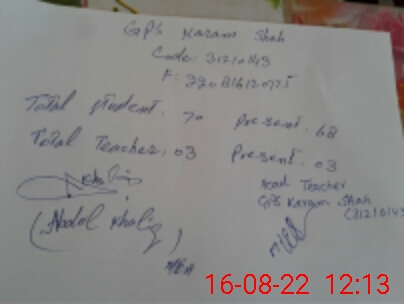 GPS Karam Shah
Code: 31210143
F:
Total student. 70 Present. 68
Total Teacher. 03 Present. 03
Head Teacher
GPS Karam Shah
(31210143
(Abdul Khaliq)
MEA
16-08-22 12:13